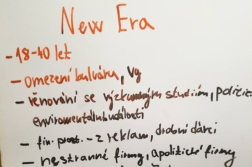 New Era
- 18-40 let
- omezení bulváru, Vg
- věnování se výzkumným studiím, policii
enviromentalni události
- fin. - z reklam, drobní dárci
- nestranné firmy, apolitické firmy